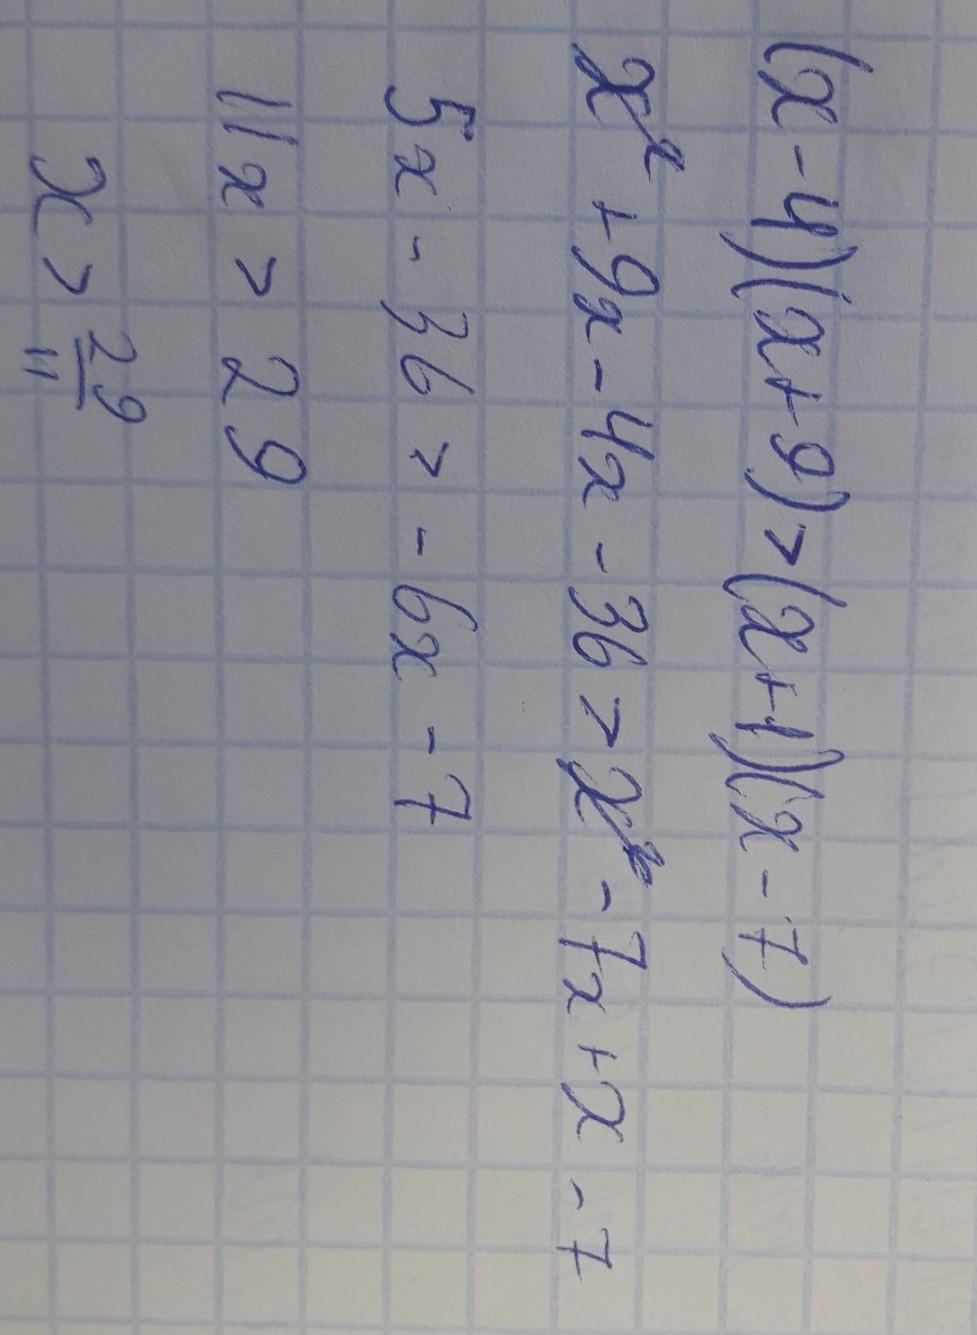 (x-4)(x+9)>(x+1)(x-7)
x²+9x-4x-36>x²-7x+x-7
5x-36>-6x-7
11x>29
x>29/11